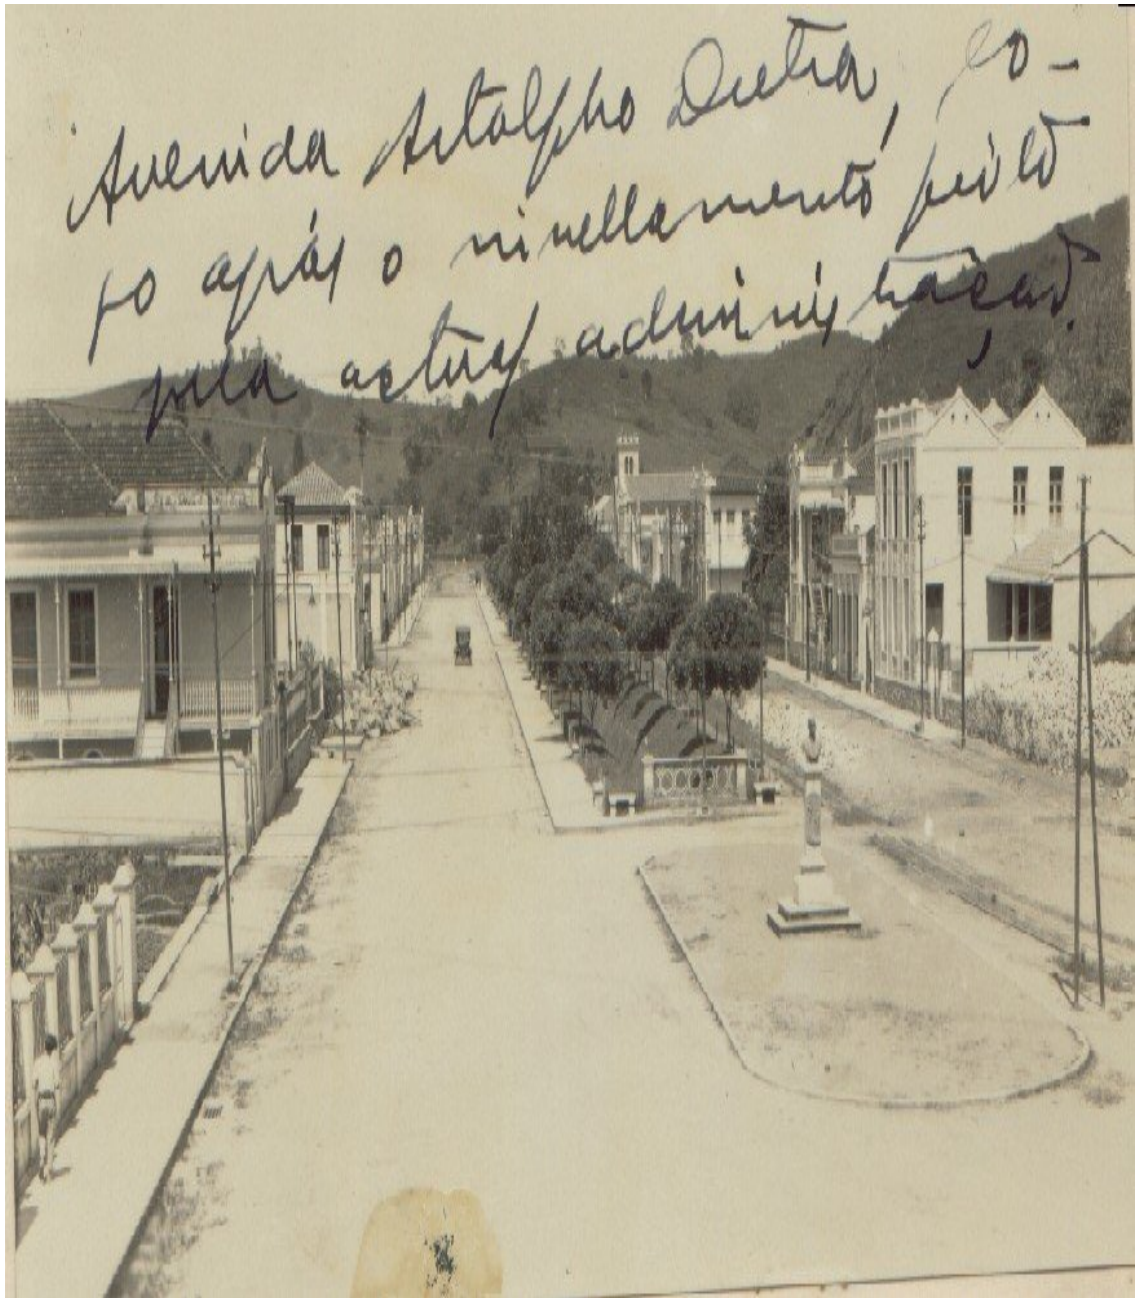 Avenida Astolpho Dutra, lo-
go após o nivellamento feito
pela actual administração.